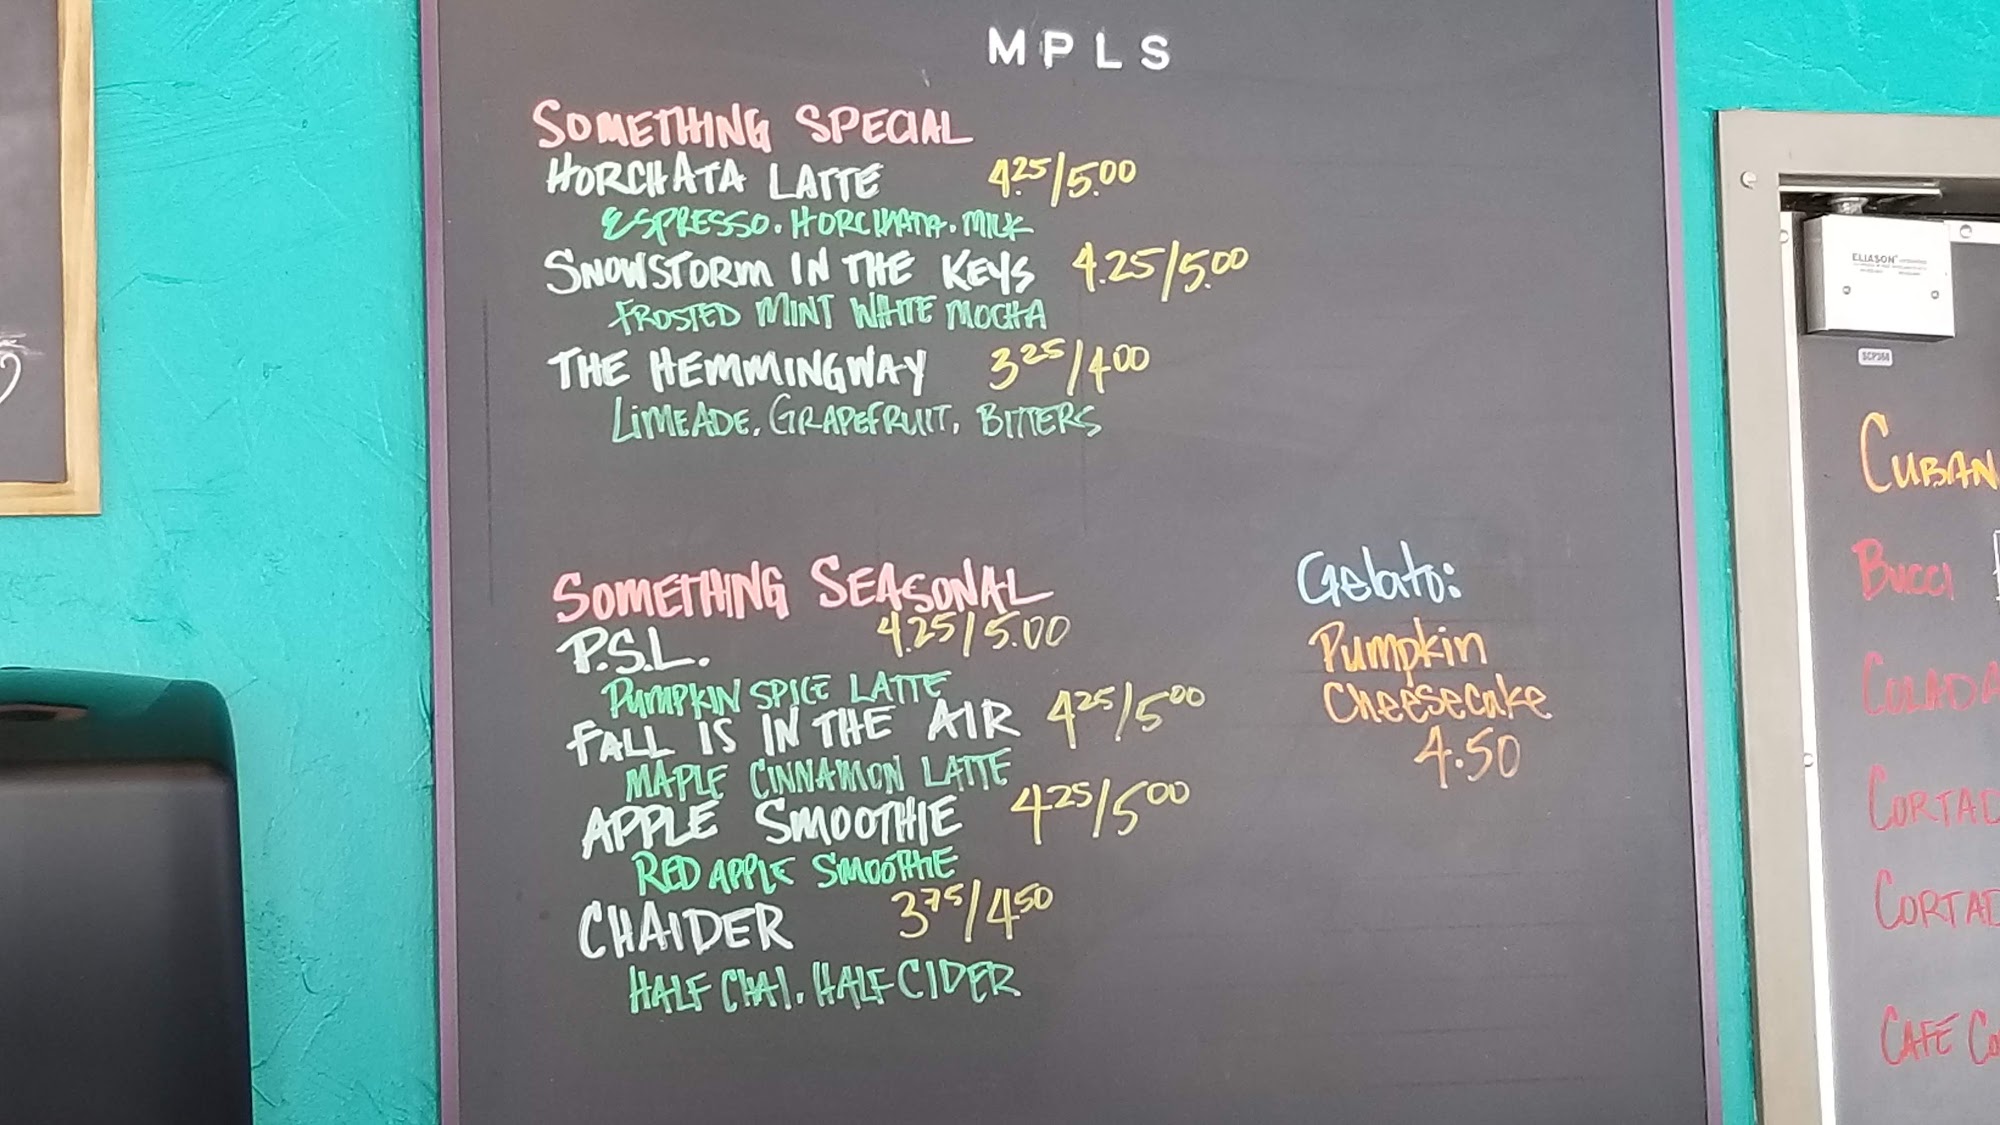 MPLS
SOMETHING SPECIAL
HORCHATA LATTE 4.25/5.00
ESPRESSO. HORCHATA. MILK
SNOWSTORM IN THE KEYS 4.25/5.00
FROSTED MINT WHITE MOCHA
THE HEMMINGWAY 3.25/4.00
LIMEADE. GRAPEFRUIT. BITTERS
SOMETHING SEASONAL
P.S.L. 4.25/5.00
PUMPKIN SPICE LATTE
FALL IS IN THE AIR 4.25/5.00
MAPLE CINNAMON LATTE
APPLE SMOOTHIE 4.25/5.00
RED APPLE SMOOTHIE
CHAIDER 3.75/4.50
HALF CHAI. HALF CIDER
Gelato:
Pumpkin
Cheesecake
4.50
ELIASON
SCP366
CUBAN
BUCCI
COLADA
CORTAD
CORTAD
CAFE CO